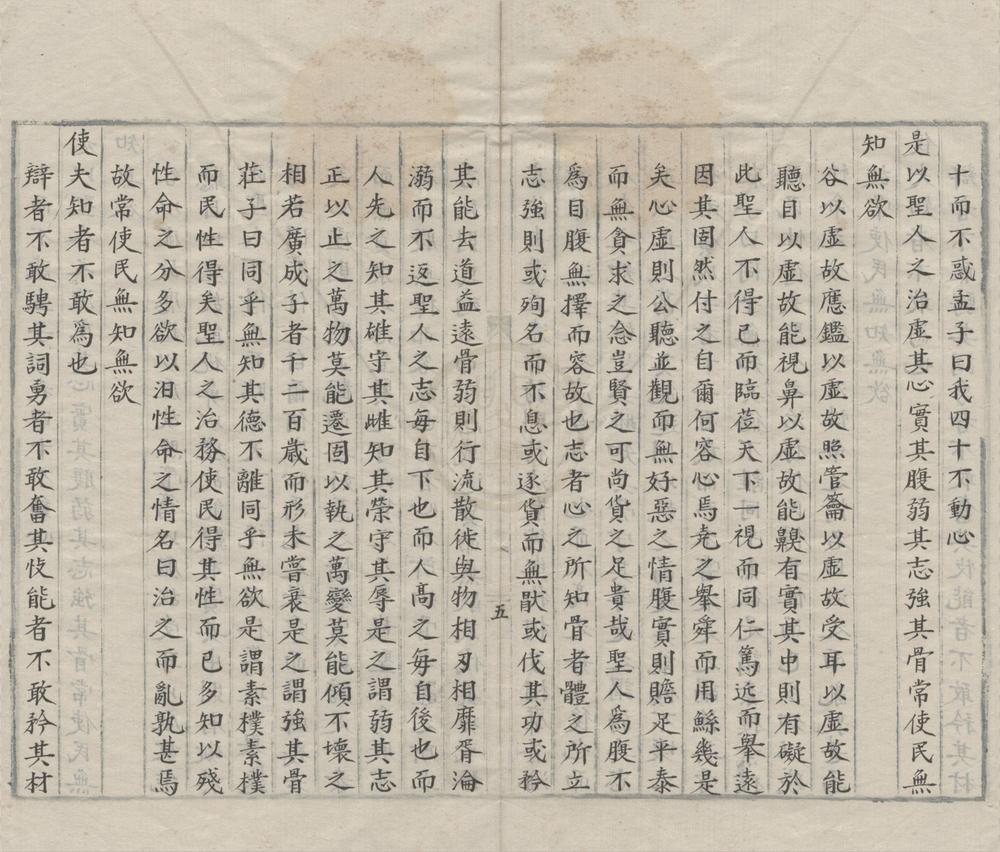 十而不惑孟子曰我四十不動心
是以聖人之治虛其心實其腹弱其志強其骨常使民無
知無欲
谷以虛故應鑑以虛故照管籥以虛故受耳以虛故能
聽目以虛故能視鼻以虛故能齅有實其中則有礙於
此聖人不得已而臨莅天下一視而同仁篤近而舉遠
因其固然付之自爾何容心焉堯之舉舜而用鯀幾是
矣心虛則公聽並觀而無好惡之情腹實則贍足平泰
而無貪求之念豈賢之可尚貨之足貴哉聖人為腹不
為目腹無擇而容故也志者心之所知骨者體之所立
志強則或殉名而不息或逐貨而無猒或伐其功或矜
五
其能去道益遠骨弱則行流散徙與物相刃相靡胥淪
溺而不返聖人之志每自下也而人高之每自後也而
人先之知其雄守其雌知其榮守其辱是之謂弱其志
正以止之萬物莫能遷固以執之萬變莫能傾不壞之
相若廣成子者千二百歲而形未嘗衰是之謂強其骨
莊子曰同乎無知其德不離同乎無欲是謂素樸素樸
而民性得矣聖人之治務使民得其性而已多知以殘
性命之分多欲以汩性命之情名曰治之而亂孰甚焉
故常使民無知無欲
使夫知者不敢為也
辯者不敢騁其詞勇者不敢奮其忮能者不敢矜其材